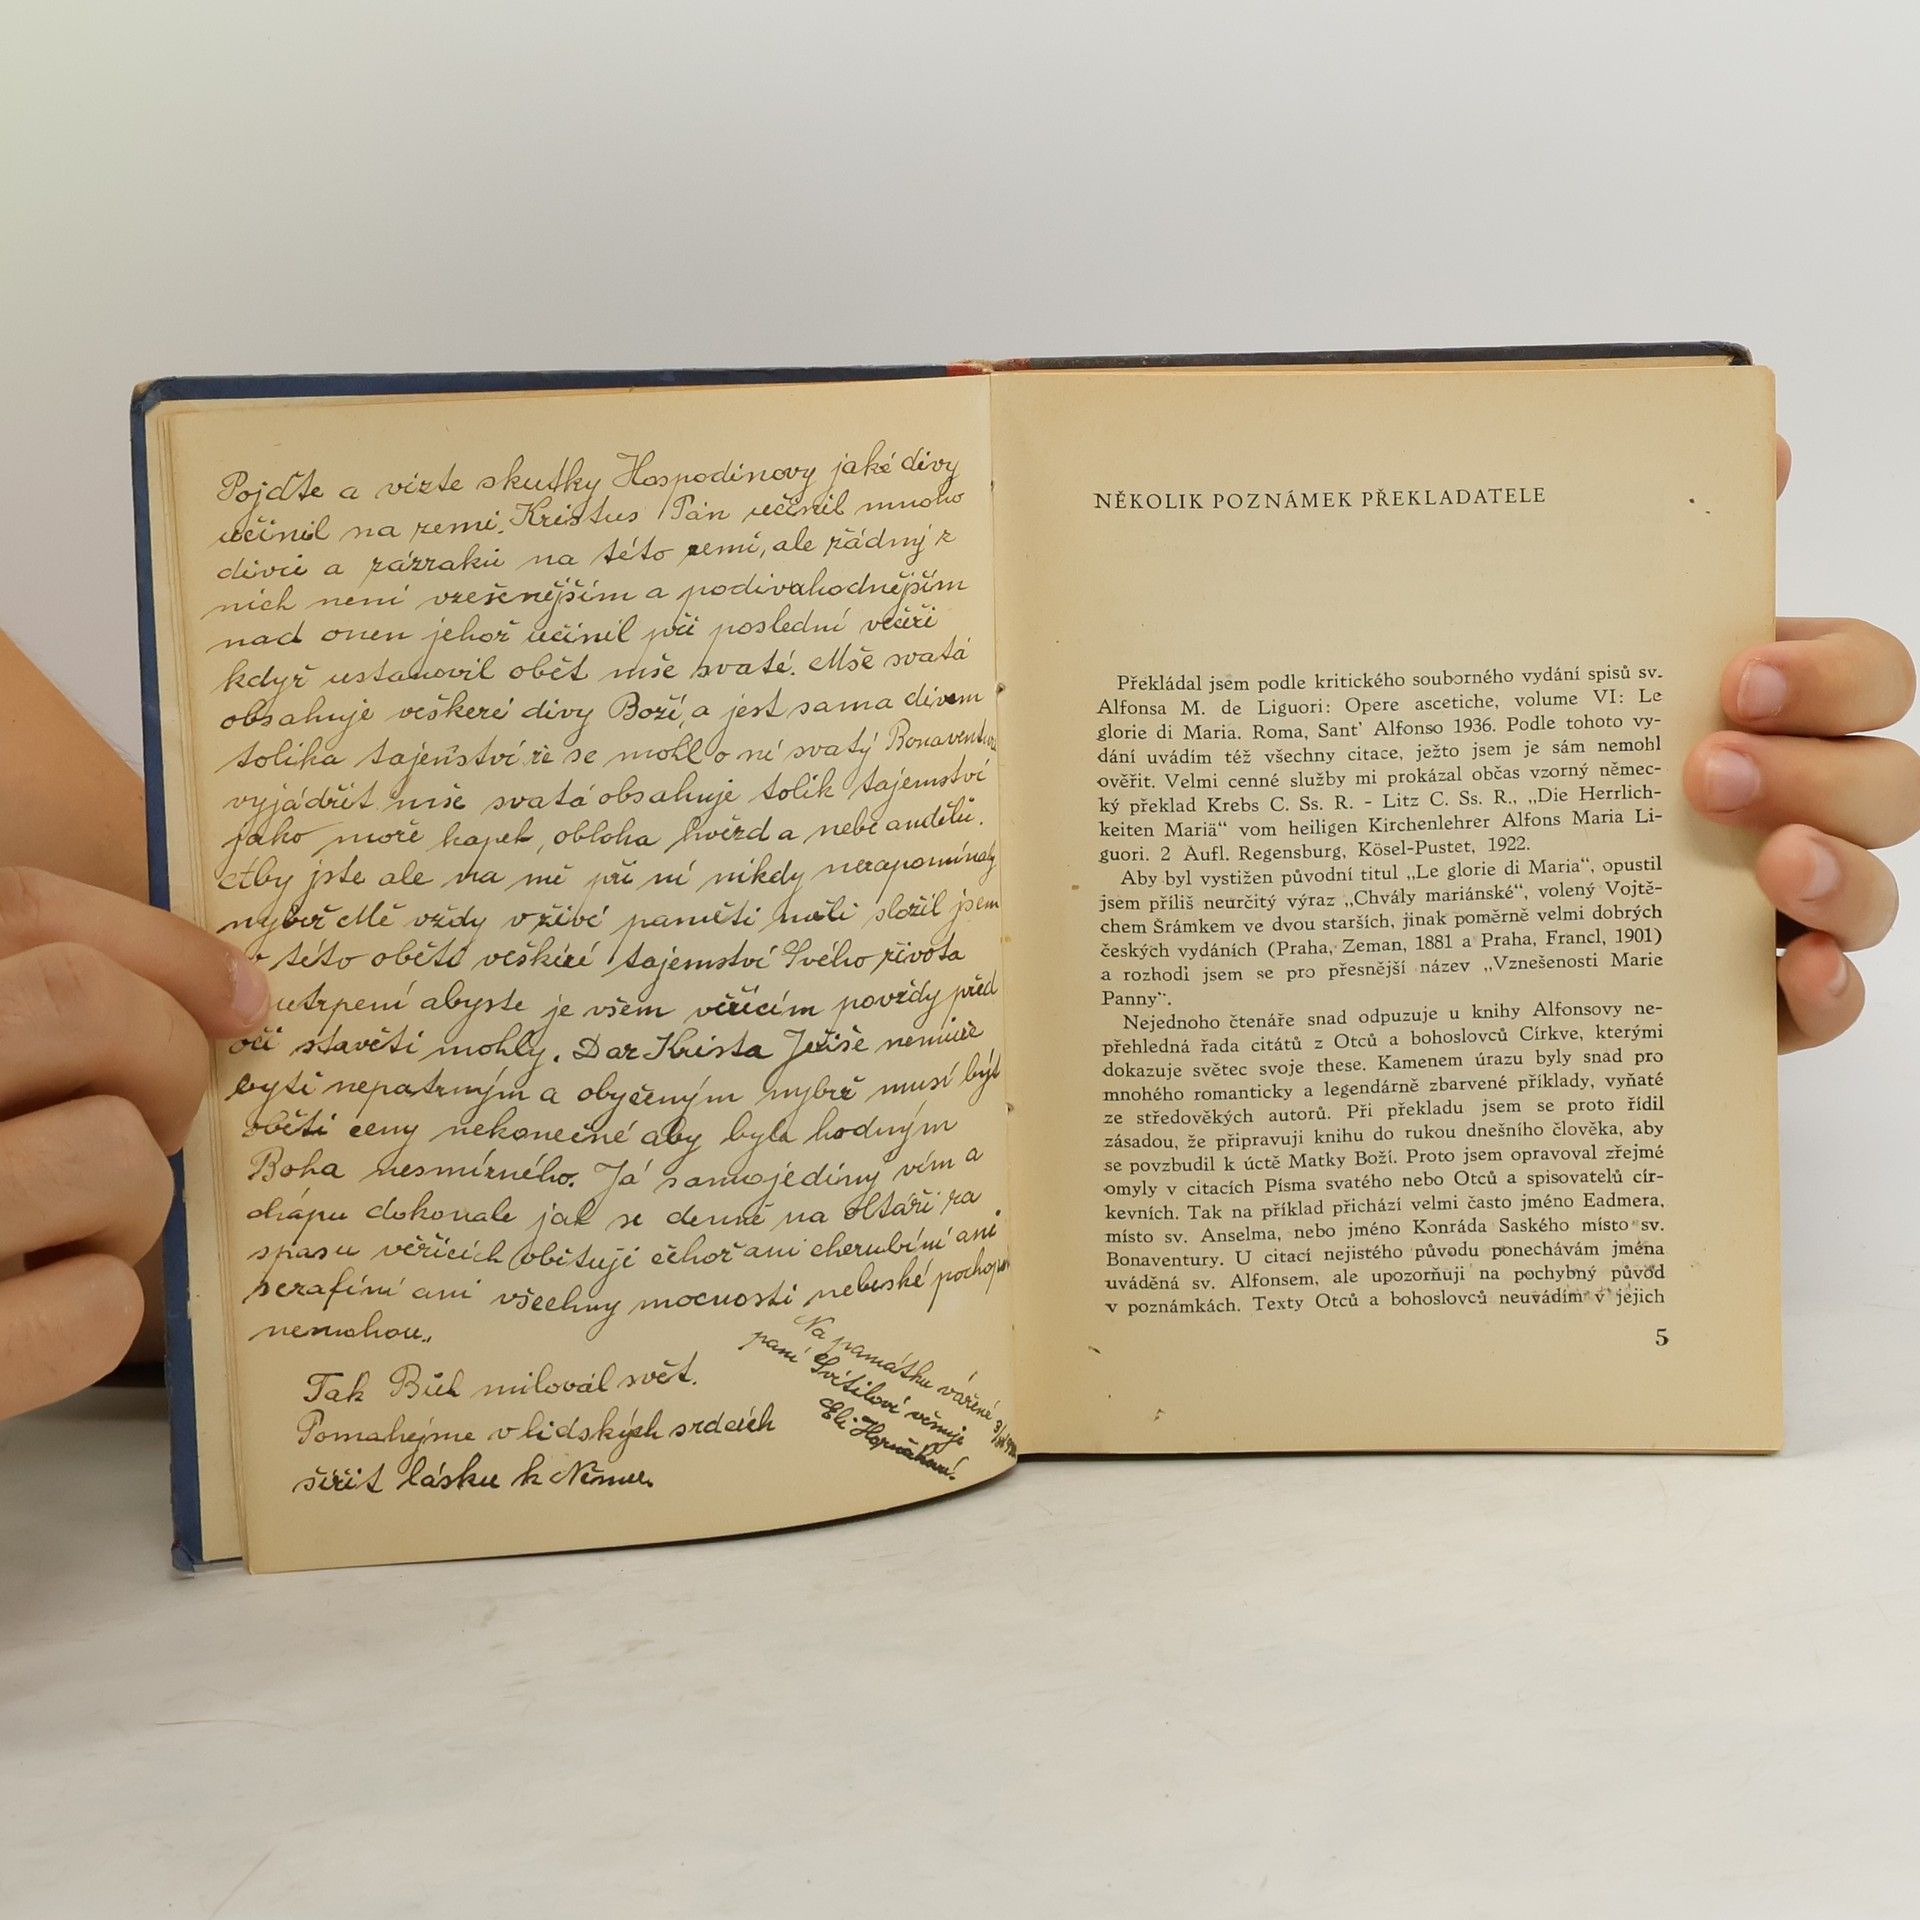 Pojďte a vizte skutky Hospodinovy jaké divy
učinil na zemi. Kristus Pán učinil mnoho
divů a zázraků na této zemi, ale žádný z
nich není vzešenějším a podivuhodnějším
nad onen jehož učinil při poslední večeři
když ustanovil obět mše svaté. Mše svatá
obsahuje veškeré divy Boží, a jest sama divem
tolika tajemství že se mohl o ní svatý Bonaventura
vyjádřit mše svatá obsahuje tolik tajemství
jako moře kapek, obloha hvězd a nebe andělů.
Aby jste ale na mě při ní nikdy nezapomínaly
nybrž Mě vždy v živé paměti měli složil jsem
v této oběti veškeré tajemství Svého života
utrpení abyste je všem věřícím povždy před
oči stavěti mohly. Dar Krista Ježíše nemůže
byti nepatrným a obyčeným nybrž musí být
oběti ceny nekonečné aby byla hodným
Boha nesmírného. Já samojediný vím a
chápu dokonale jak se denně na oltáři za
spasu věřících obětuji čehož ani cherubíni ani
serafíni ani všechny mocnosti nebeské
nemohou.
Tak Bůh miloval svět.
Pomahejme v lidských srdcích
šířit lásku k Němu.
Na památku vážené
paní Svítilové věnuje
NĚKOLIK POZNÁMEK PŘEKLADATELE
Překládal jsem podle kritického souborného vydání spisů sv.
Alfonsa M. de Liguori: Opere ascetiche, volume VI: Le
glorie di Maria. Roma, Sant' Alfonso 1936. Podle tohoto vy-
dání uvádím též všechny citace, ježto jsem je sám nemohl
ověřit. Velmi cenné služby mi prokázal občas vzorný němec-
ký překlad Krebs C. Ss. R. - Litz C. Ss. R., „Die Herrlich-
keiten Mariä“ vom heiligen Kirchenlehrer Alfons Maria Li-
guori. 2 Aufl. Regensburg, Kösel-Pustet, 1922.
Aby byl vystižen původní titul „Le glorie di Maria“, opustil
jsem příliš neurčitý výraz „Chvály mariánské“, volený Vojtě-
chem Šrámkem ve dvou starších, jinak poměrně velmi dobrých
českých vydáních (Praha, Zeman, 1881 a Praha, Francl, 1901)
a rozhodl jsem se pro přesnější název „Vznešenosti Marie
Panny“.
Nejednoho čtenáře snad odpuzuje u knihy Alfonsovy ne-
přehledná řada citátů z Otců a bohoslovců Církve, kterými
dokazuje světec svoje these. Kamenem úrazu byly snad pro
mnohého romanticky a legendárně zbarvené příklady, vyňaté
ze středověkých autorů. Při překladu jsem se proto řídil
zásadou, že připravuji knihu do rukou dnešního člověka, aby
se povzbudil k úctě Matky Boží. Proto jsem opravoval zřejmé
omyly v citacích Písma svatého nebo Otců a spisovatelů cír-
kevních. Tak na příklad přichází velmi často jméno Eadmera,
místo sv. Anselma, nebo jméno Konráda Saského místo sv.
Bonaventury. U citací nejistého původu ponechávám jména
uváděná sv. Alfonsem, ale upozorňuji na pochybný původ
v poznámkách. Texty Otců a bohoslovců neuvádím v jejich
5